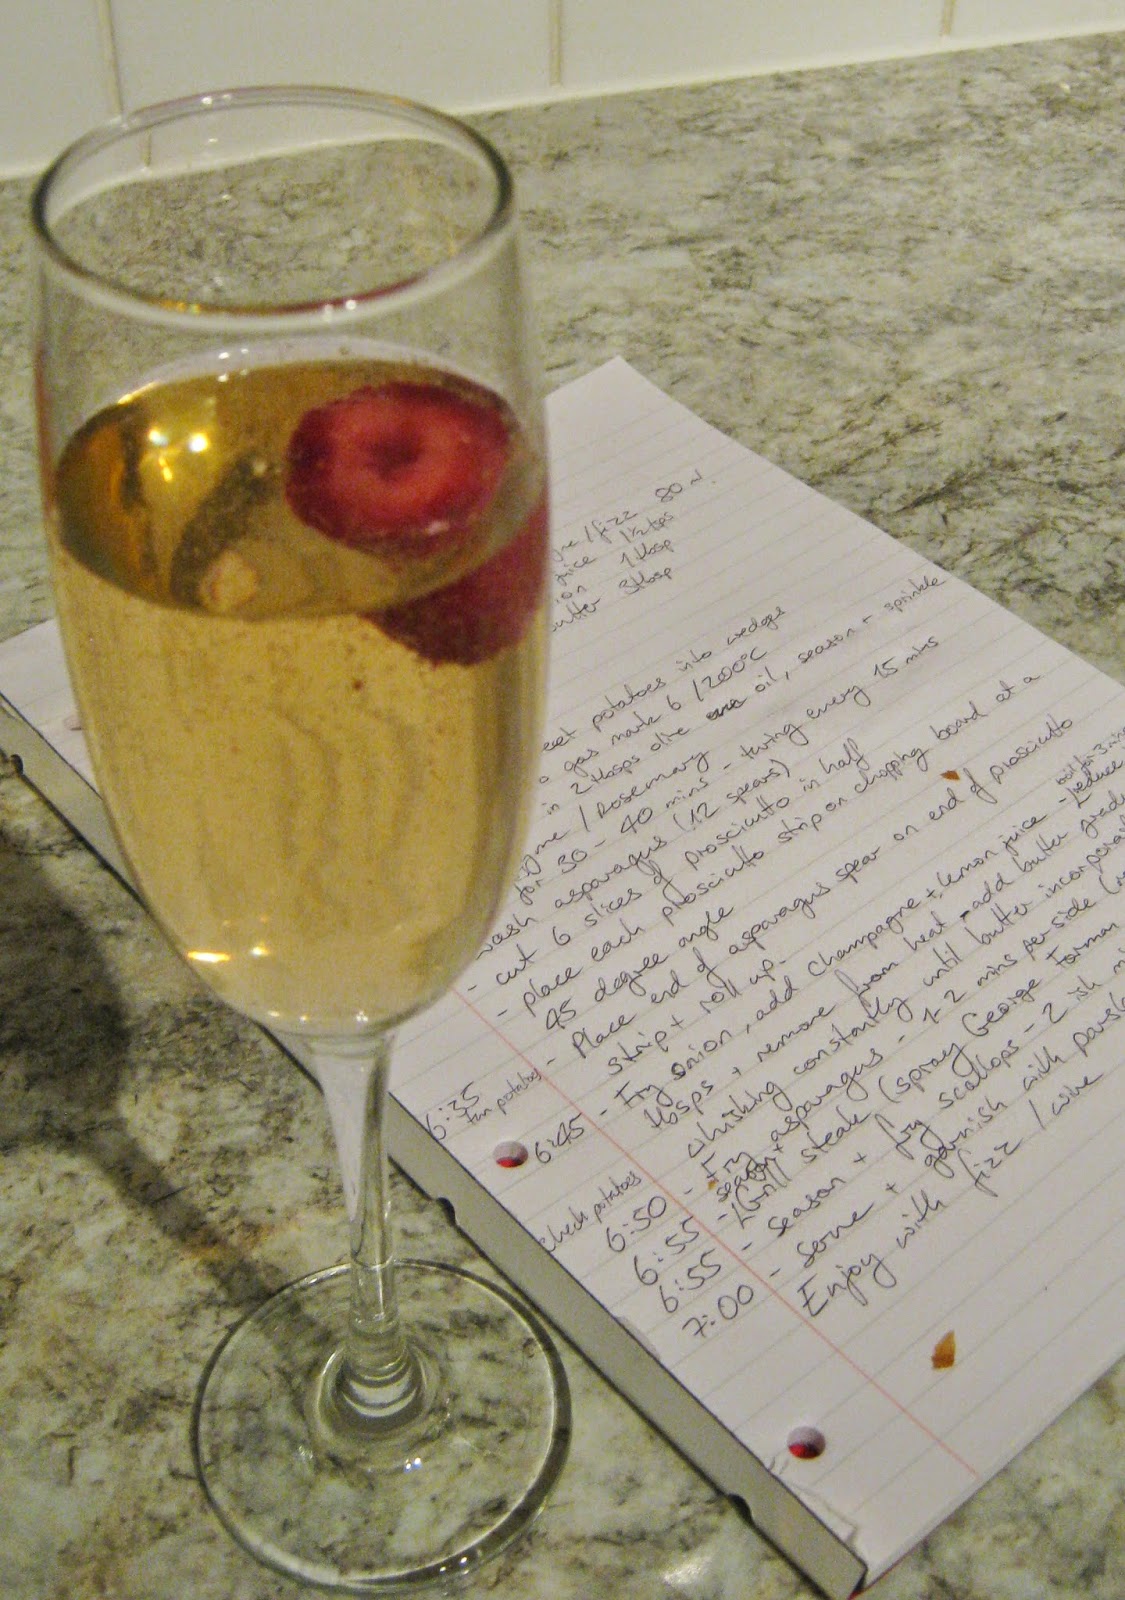 /fizz 80ml.
juice 1½tbsps
1tbsp
butter 3tbsp
potatoes into wedges
gas mark 6 /200°C
in 2 tbsps olive oil, season + sprinkle
/ Rosemary
for 30 - 40 mins - turing every 15 mins
wash asparagus (12 spears)
- cut 6 slices of prosciutto in half
- place each prosciutto strip on chopping board at a
45 degree angle
- Place end of asparagus spear on end of prosciutto
strip + roll up.
6:35
turn potatoes
6:45 - Fry onion, add champagne + lemon juice - reduce
boil for 3 mins
tbsps + remove from heat - add butter
whisking constantly until butter
check potatoes
6:50 - Fry asparagus - 1-2 mins per side
season +
6:55 - Grill steak (spray George Forman
6:55 - season + fry scallops - 2 ish
7:00 - serve + garnish with
Enjoy with fizz / wine